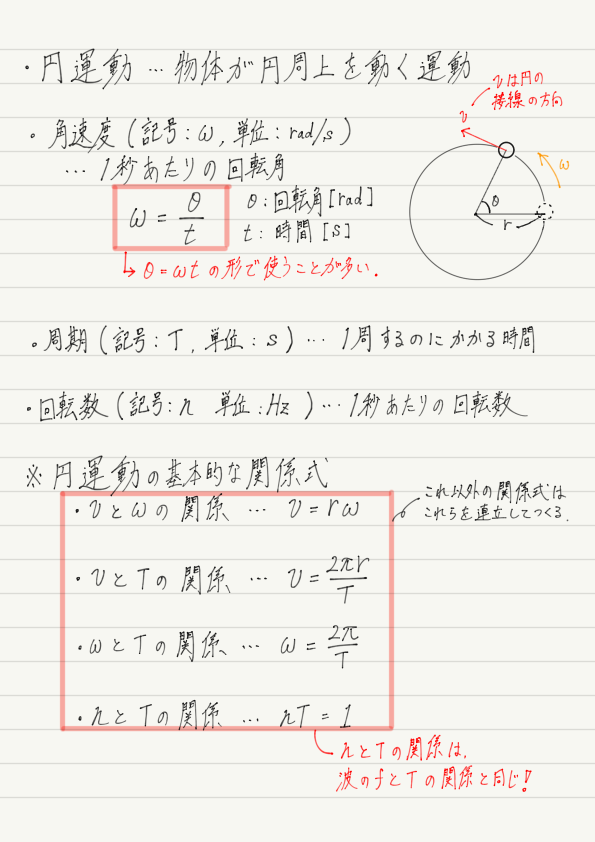 ・円運動 … 物体が円周上を動く運動
vは円の
接線の方向
v
。角速度 (記号：ω, 単位：rad/s)
… 1秒あたりの回転角
ω
ω = θ/t
θ：回転角[rad]
t：時間 [s]
θ
r
↳ θ=ωt の形で使うことが多い.
。周期 (記号：T, 単位：s) … 1周するのにかかる時間
・回転数 (記号：n 単位：Hz ) … 1秒あたりの回転数
※ 円運動の基本的な関係式
・vとωの関係 … v = rω
これ以外の関係式は
これらを連立してつくる.
・vとTの関係 … v = 2πr/T
・ωとTの関係 … ω = 2π/T
・nとTの関係 … nT = 1
nとTの関係は,
波のfとTの関係と同じ!